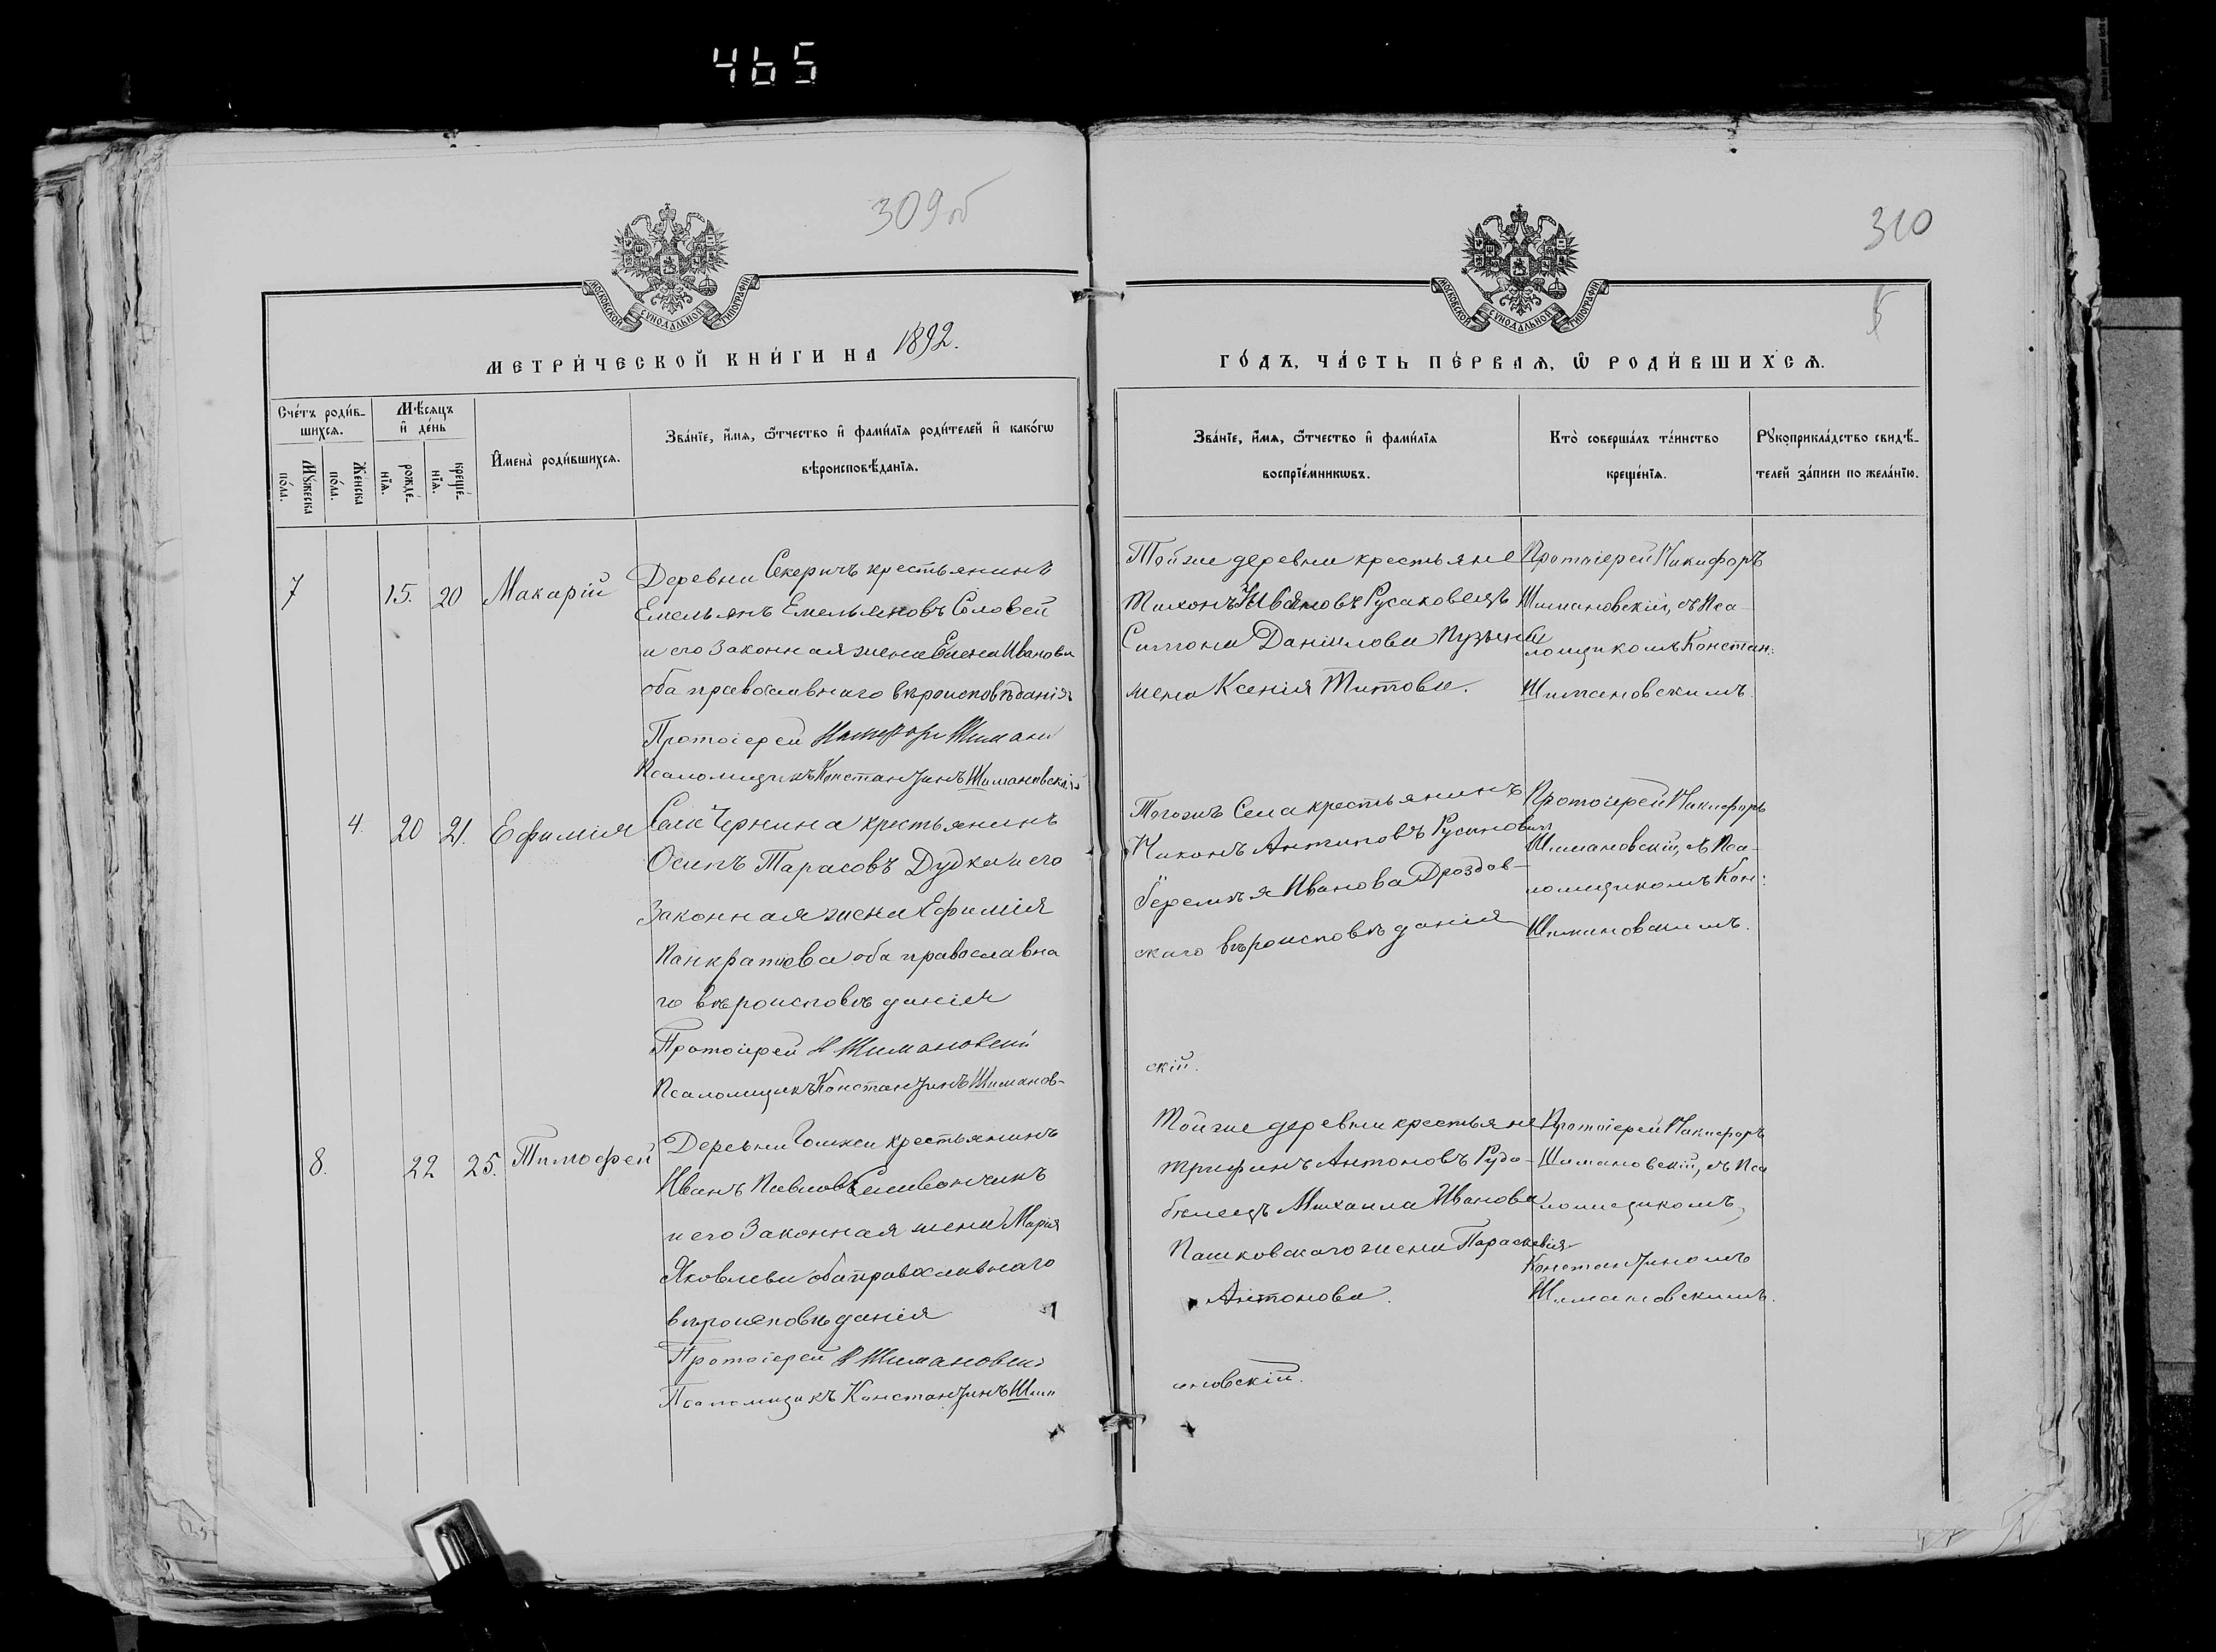 465
309об
310
5
МОСКОВСКОЙ СѴНОДАЛЬНОЙ ТИПОГРАФІИ
МОСКОВСКОЙ СѴНОДАЛЬНОЙ ТИПОГРАФІИ
МЕТРИ́ЧЕСКОЙ КНИ́ГИ НА 1892.
ГО́ДЪ, ЧА́СТЬ ПЕ́РВАѦ, Ѽ РОДИ́ВШИХСѦ.
Сче́тъ роди́в-
шихсѧ.
Мѣ́сѧцъ
и҆ де́нь
Мꙋ́жеска
по́ла.
Же́нска
по́ла.
рожде́-
нїѧ.
креще́-
нїѧ.
И҆мена̀ роди́вшихсѧ.
Зва́нїе, и҆́мѧ, ѻ҆́тчество и҆ фами́лїѧ роди́телей и҆ како́гѡ
вѣроисповѣ́данїѧ.
Зва́нїе, и҆́мѧ, ѻ҆́тчество и҆ фами́лїѧ
воспрїе́мникѡвъ.
Кто̀ соверша́лъ та́инство
креще́нїѧ.
Рꙋкоприкла́дство свидѣ́-
телей за́писи по жела́нїю.
7 15. 20 Макарій
Деревни Секеричъ крестьянинъ
Емельянъ Емельяновъ Соловей
и его Законная жена Елена Иванова
оба православнаго вѣроисповѣданія
Протоіерей Никифоръ Шиман
Псаломщикъ Константинъ Шимановскій
Тойже деревни крестьяне
Тихонъ Ивановъ Русаковецъ
Даніилова Пузына
жена Ксенія Титова.
Протоіерей Никифоръ
Шимановскій, съ Пса-
ломщикомъ Констан:
Шимановскимъ.
4. 20 21. Ефимія
Села Чернина крестьянинъ
Осипъ Тарасовъ Дудка и его
Законная жена Ефимія
Панкратіева оба православна
го вѣроисповѣданія
Протоіерей Н Шимановскій
Псаломщикъ Константинъ Шиманов-
Тогожъ Села крестьянинъ
Никонъ Антиповъ Русинович
Иванова Дроздов-
скаго вѣроисповѣданія
скій.
Протоіерей Никифоръ
Шимановскій, съ Пса-
ломщикомъ Кон:
Шимановскимъ.
8. 22 25. Тимофей
Деревни крестьянинъ
Иванъ Павловъ Селивончикъ
и его Законная жена Марія
Яковлева оба православнаго
вѣроисповѣданія
Протоіерей Н Шимановскій
Псаломщикъ Константинъ Шим
Тойже деревни крестьяне
Трифинъ Антоновъ Рудо-
бѣлецъ Михаила Иванова
Пашковскаго жена Параскевія
Антонова.
ановскій.
Протоіерей Никифоръ
Шимановскій, съ Пса
ломщикомъ,
Константиномъ
Шимановскимъ.